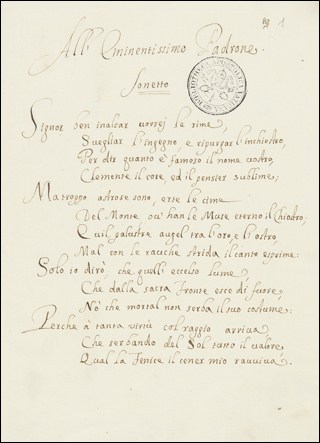 1
All' Eminentissimo Padrone.
Sonetto
Signor ben inalzar vorrei le rime,
Svegliar l'ingegno e ripurgar l'inchiostro,
Per dir quanto è famoso il nome vostro,
Clemente il core, ed il pensier sublime;
Ma troppo astrose sono, erte le cime
Del Monte ou' han le Muse eterno il Chiostro,
Qual palustre augel tra l'oro, e l'ostro,
Mal con le rauche strida il canto esprime:
Solo io dirò, che quell' eccelso lume
Che dalla sacra Fronte esce di fuore,
Nò che mortal non serba il suo costume:
Perche à tanta virtù col raggio arriva
Che serbando del Sol tutto il valore,
Qual la Fenice il cener mio ravviva.